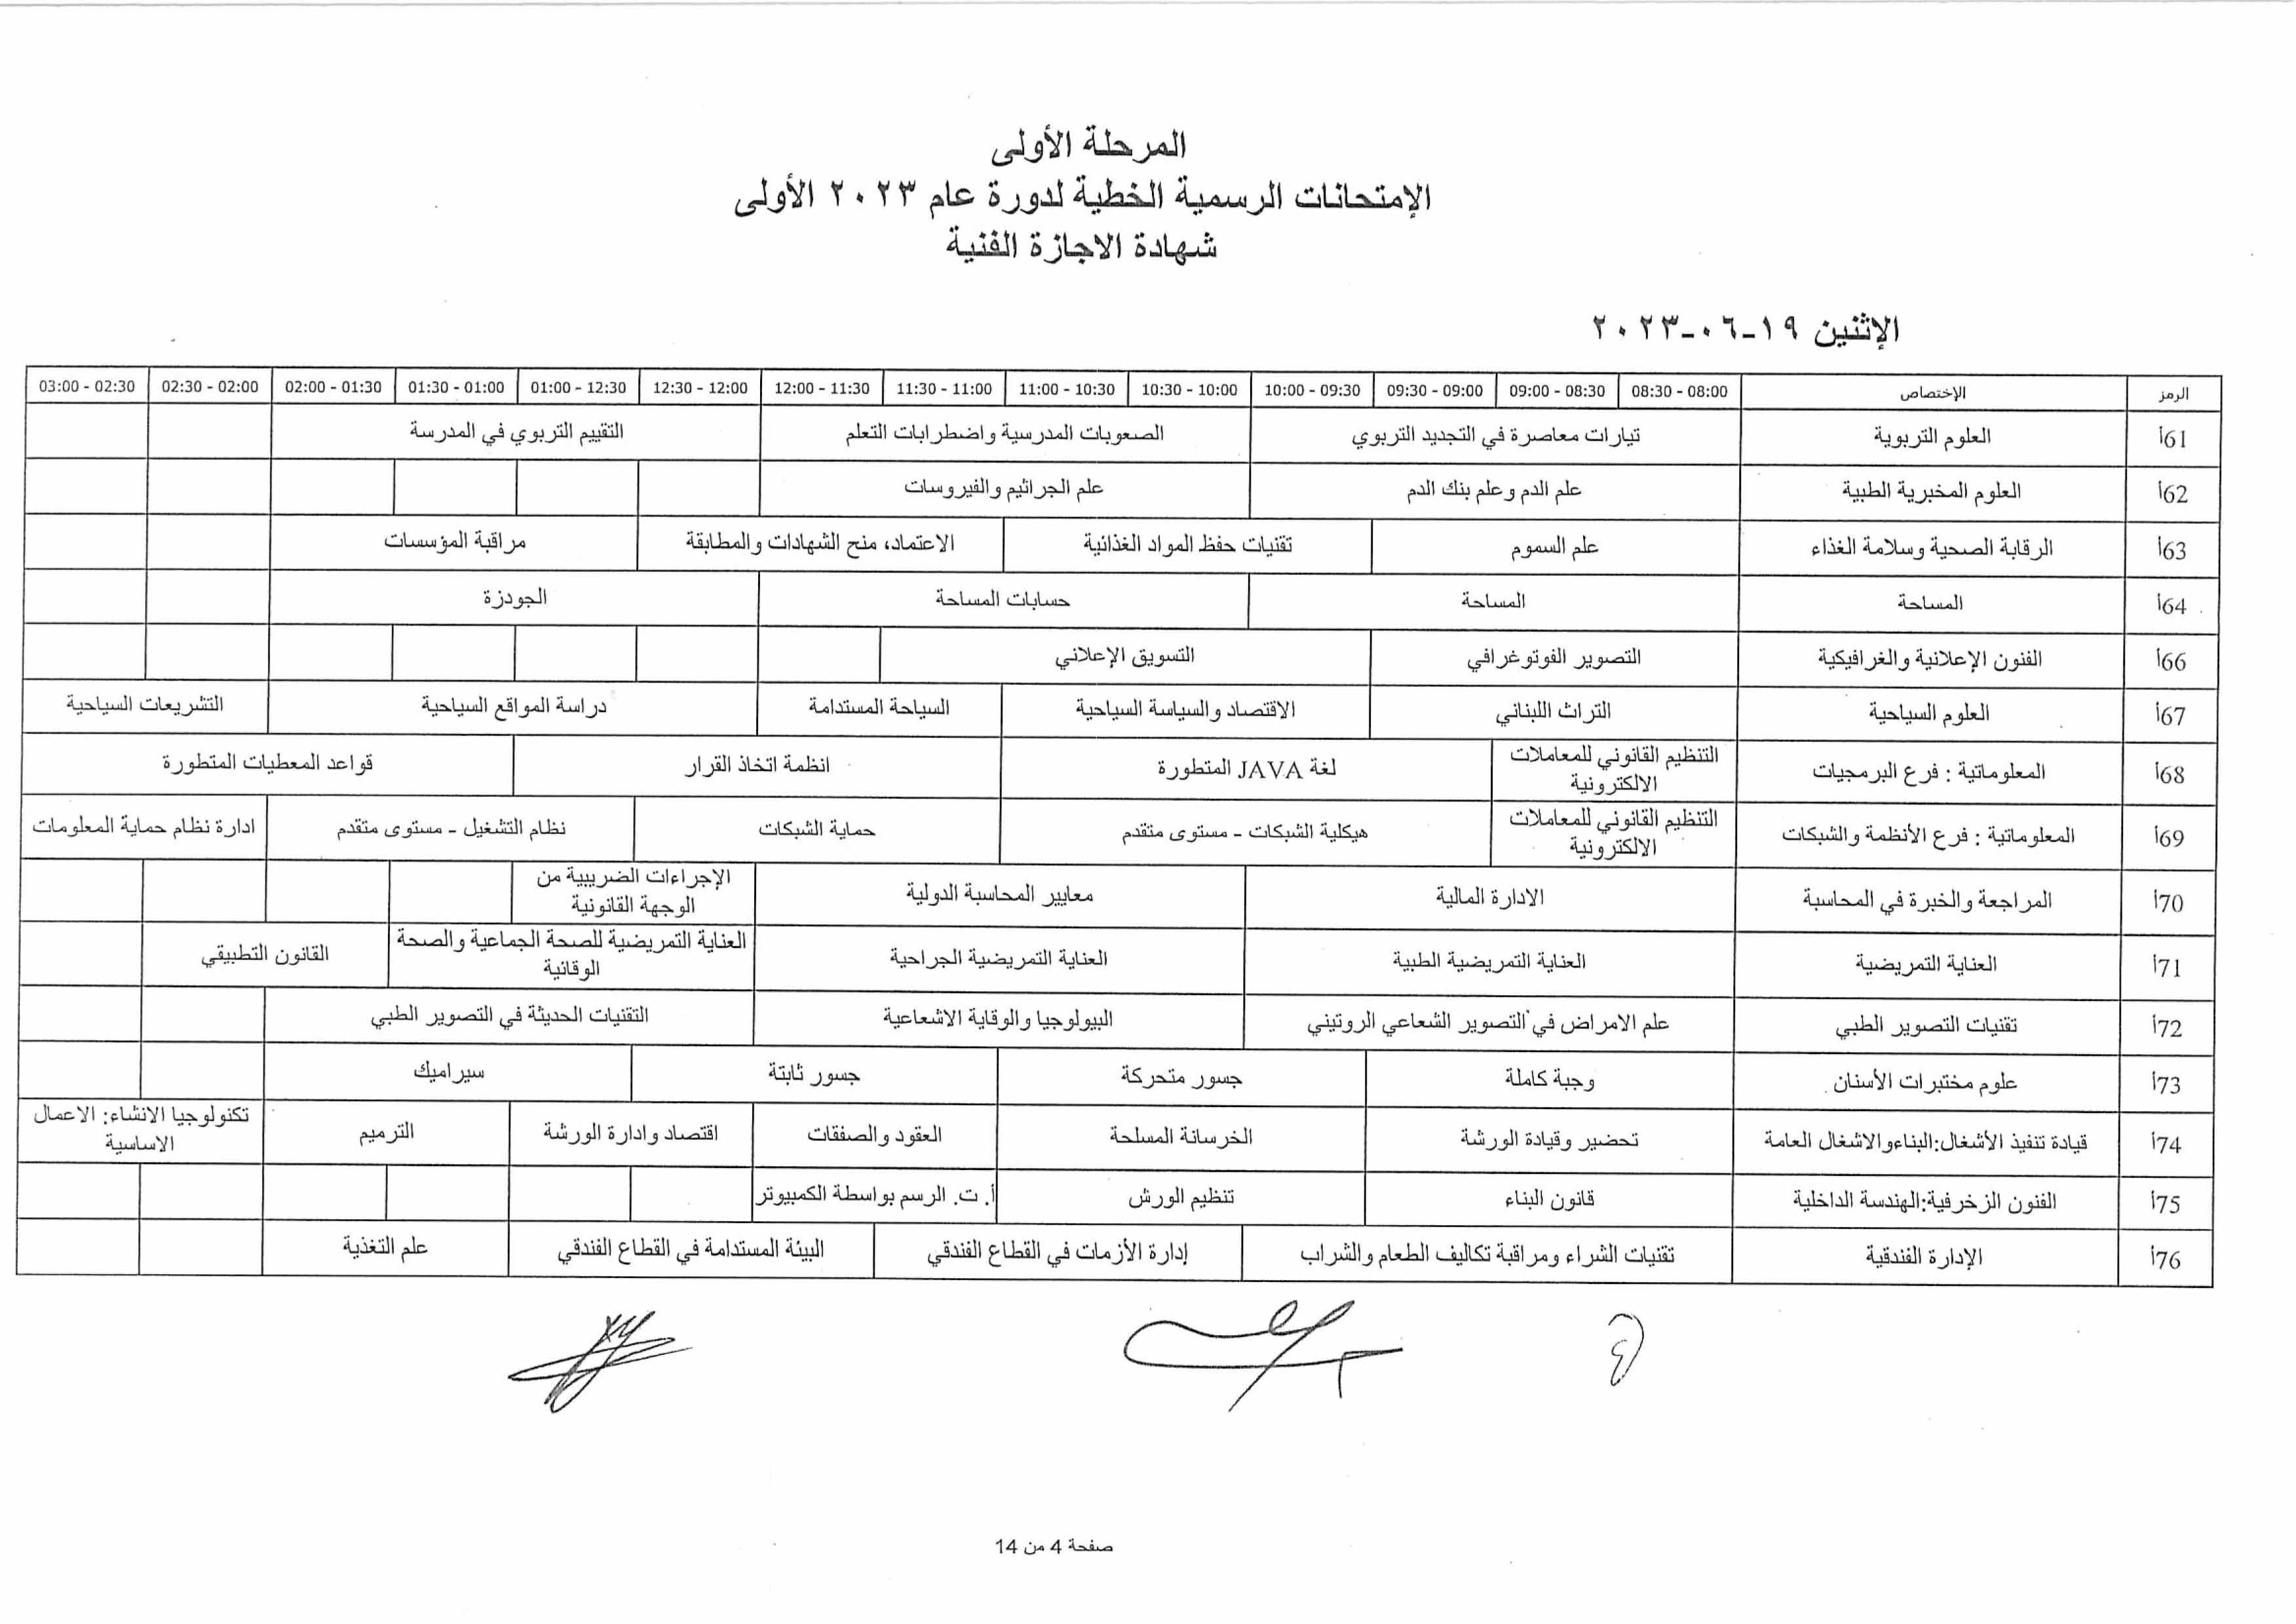 المرحلة الأولى
الإمتحانات الرسمية الخطية لدورة عام ٢٠٢٣ الأولى
شهادة الاجازة الفنية
الإثنين ١٩-٠٦-٢٠٢٣
الرمز الإختصاص 08:00 - 08:30 08:30 - 09:00 09:00 - 09:30 09:30 - 10:00 10:00 - 10:30 10:30 - 11:00 11:00 - 11:30 11:30 - 12:00 12:00 - 12:30 12:30 - 01:00 01:00 - 01:30 01:30 - 02:00 02:00 - 02:30 02:30 - 03:00
61أ العلوم التربوية تيارات معاصرة في التجديد التربوي الصعوبات المدرسية واضطرابات التعلم التقييم التربوي في المدرسة
62أ العلوم المخبرية الطبية علم الدم وعلم بنك الدم علم الجراثيم والفيروسات
63أ الرقابة الصحية وسلامة الغذاء علم السموم تقنيات حفظ المواد الغذائية الاعتماد، منح الشهادات والمطابقة مراقبة المؤسسات
64أ المساحة المساحة حسابات المساحة الجودزة
66أ الفنون الإعلانية والغرافيكية التصوير الفوتوغرافي التسويق الإعلاني
67أ العلوم السياحية التراث اللبناني الاقتصاد والسياسة السياحية السياحة المستدامة دراسة المواقع السياحية التشريعات السياحية
68أ المعلوماتية : فرع البرمجيات التنظيم القانوني للمعاملات الالكترونية لغة JAVA المتطورة انظمة اتخاذ القرار قواعد المعطيات المتطورة
69أ المعلوماتية : فرع الأنظمة والشبكات التنظيم القانوني للمعاملات الالكترونية هيكلية الشبكات - مستوى متقدم حماية الشبكات نظام التشغيل - مستوى متقدم ادارة نظام حماية المعلومات
70أ المراجعة والخبرة في المحاسبة الادارة المالية معايير المحاسبة الدولية الإجراءات الضريبية من الوجهة القانونية
71أ العناية التمريضية العناية التمريضية الطبية العناية التمريضية الجراحية العناية التمريضية للصحة الجماعية والصحة الوقائية القانون التطبيقي
72أ تقنيات التصوير الطبي علم الامراض في التصوير الشعاعي الروتيني البيولوجيا والوقاية الاشعاعية التقنيات الحديثة في التصوير الطبي
73أ علوم مختبرات الأسنان وجبة كاملة جسور متحركة جسور ثابتة سيراميك
74أ قيادة تنفيذ الأشغال:البناءوالاشغال العامة تحضير وقيادة الورشة الخرسانة المسلحة العقود والصفقات اقتصاد وادارة الورشة الترميم تكنولوجيا الانشاء: الاعمال الاساسية
75أ الفنون الزخرفية:الهندسة الداخلية قانون البناء تنظيم الورش أ. ت. الرسم بواسطة الكمبيوتر
76أ الإدارة الفندقية تقنيات الشراء ومراقبة تكاليف الطعام والشراب إدارة الأزمات في القطاع الفندقي البيئة المستدامة في القطاع الفندقي علم التغذية
صفحة 4 من 14